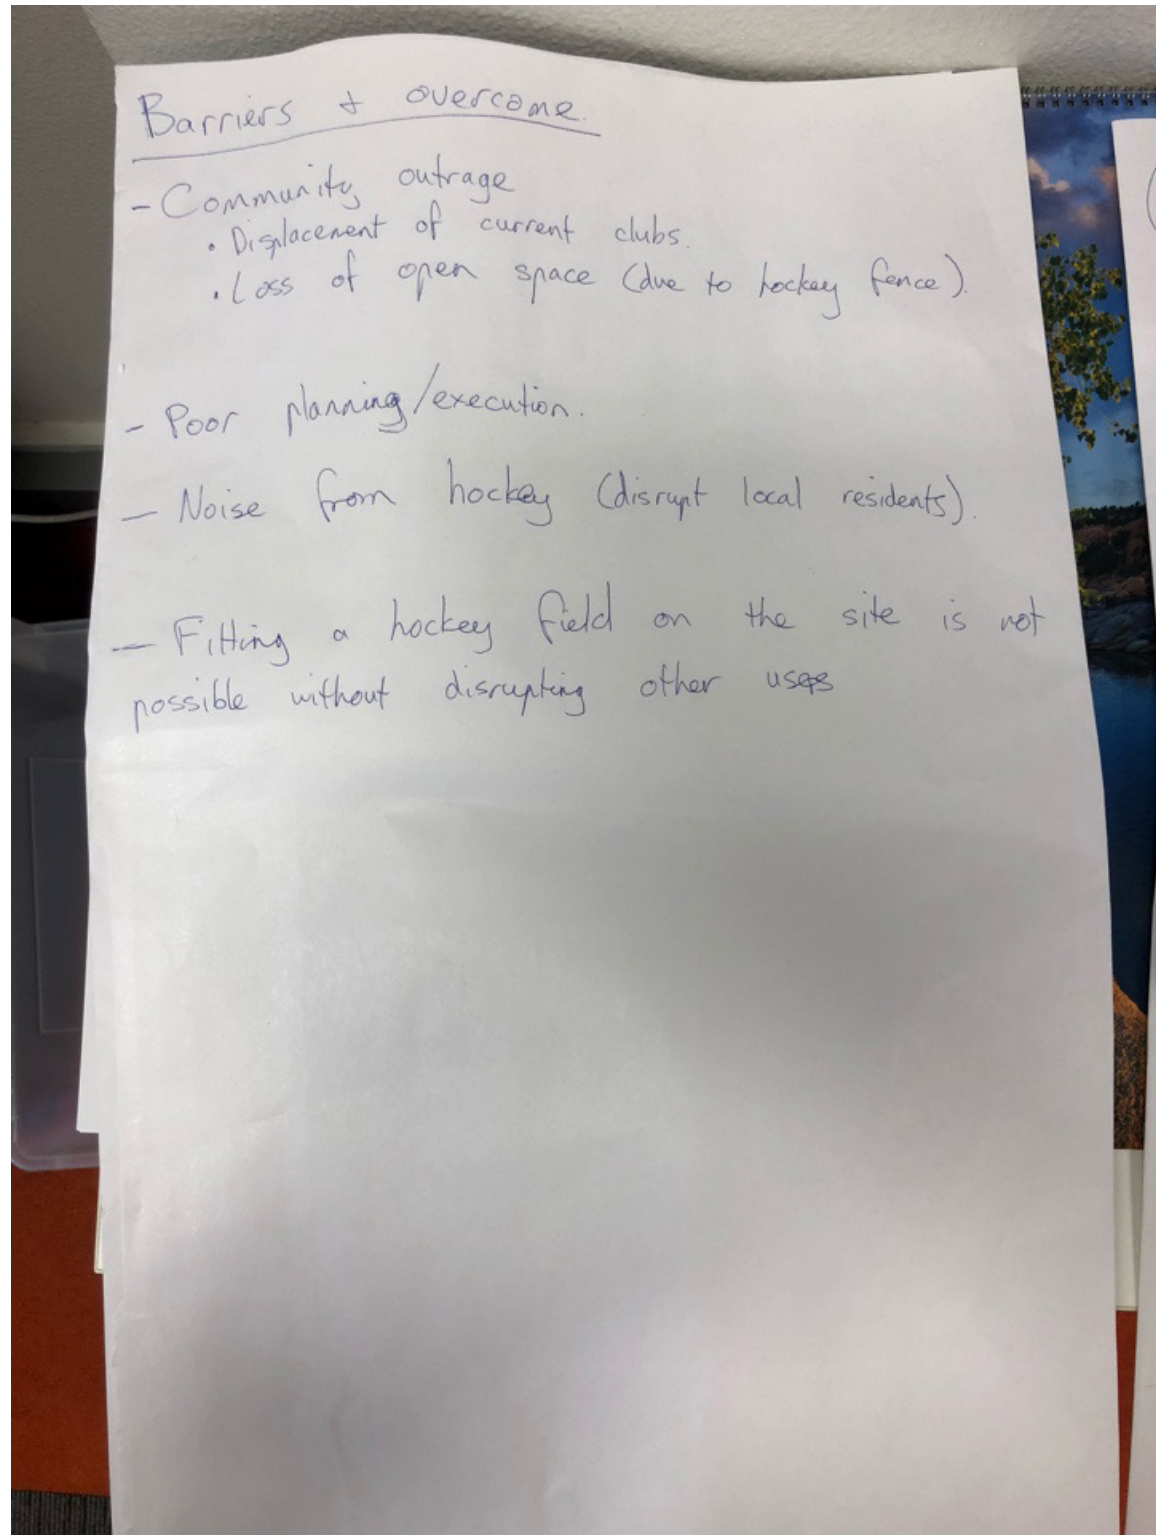 Barriers + overcome.
- Community outrage
• Displacement of current clubs.
• Loss of open space (due to hockey fence).
- Poor planning/execution.
- Noise from hockey (disrupt local residents).
- Fitting a hockey field on the site is not
possible without disrupting other uses